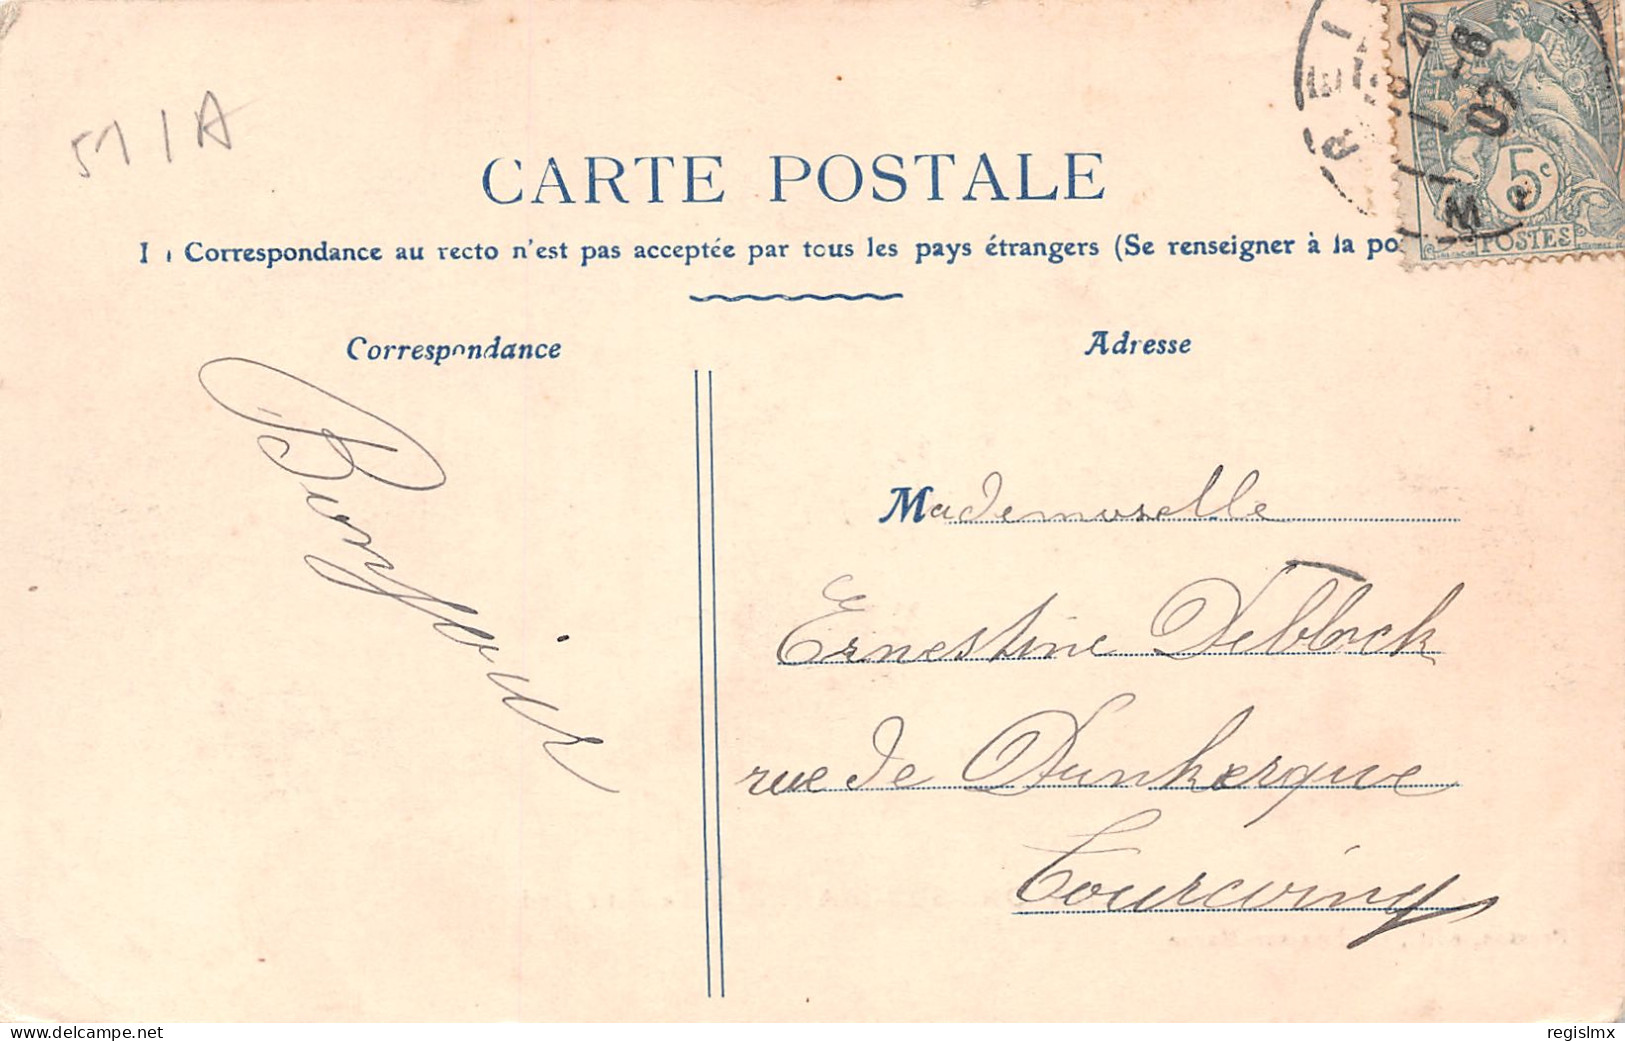 51 / A
CARTE POSTALE
Correspondance au recto n'est pas acceptée par tous les pays étrangers (Se renseigner à la po
Correspondance
Adresse
Bonjour
Mademoiselle
Ernestine Deblock
rue de Dunkerque
Tourcoing
5c
POSTES
REI
20
-8
09
www.delcampe.net
regislmx